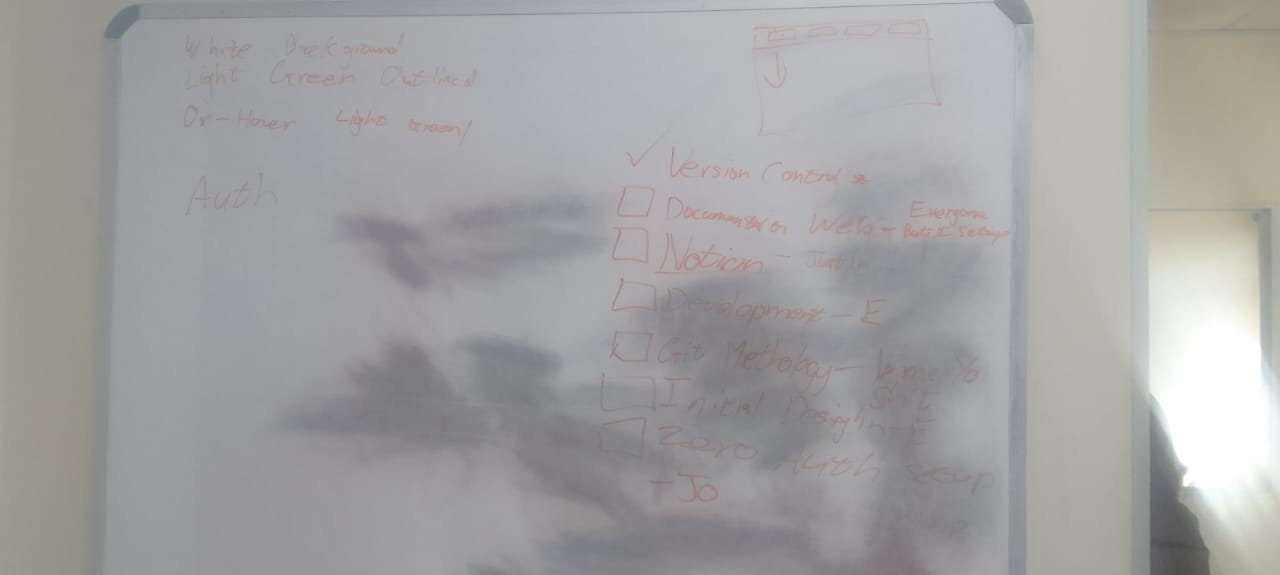 White Background
Light Green Outlined
On-Hover Light Green/
Auth
Version Control
Everyone
Web -
Setup
Notion -
Development - E
Git Methology -
Initial Desighn - E
Zero Auth setup
- Jo